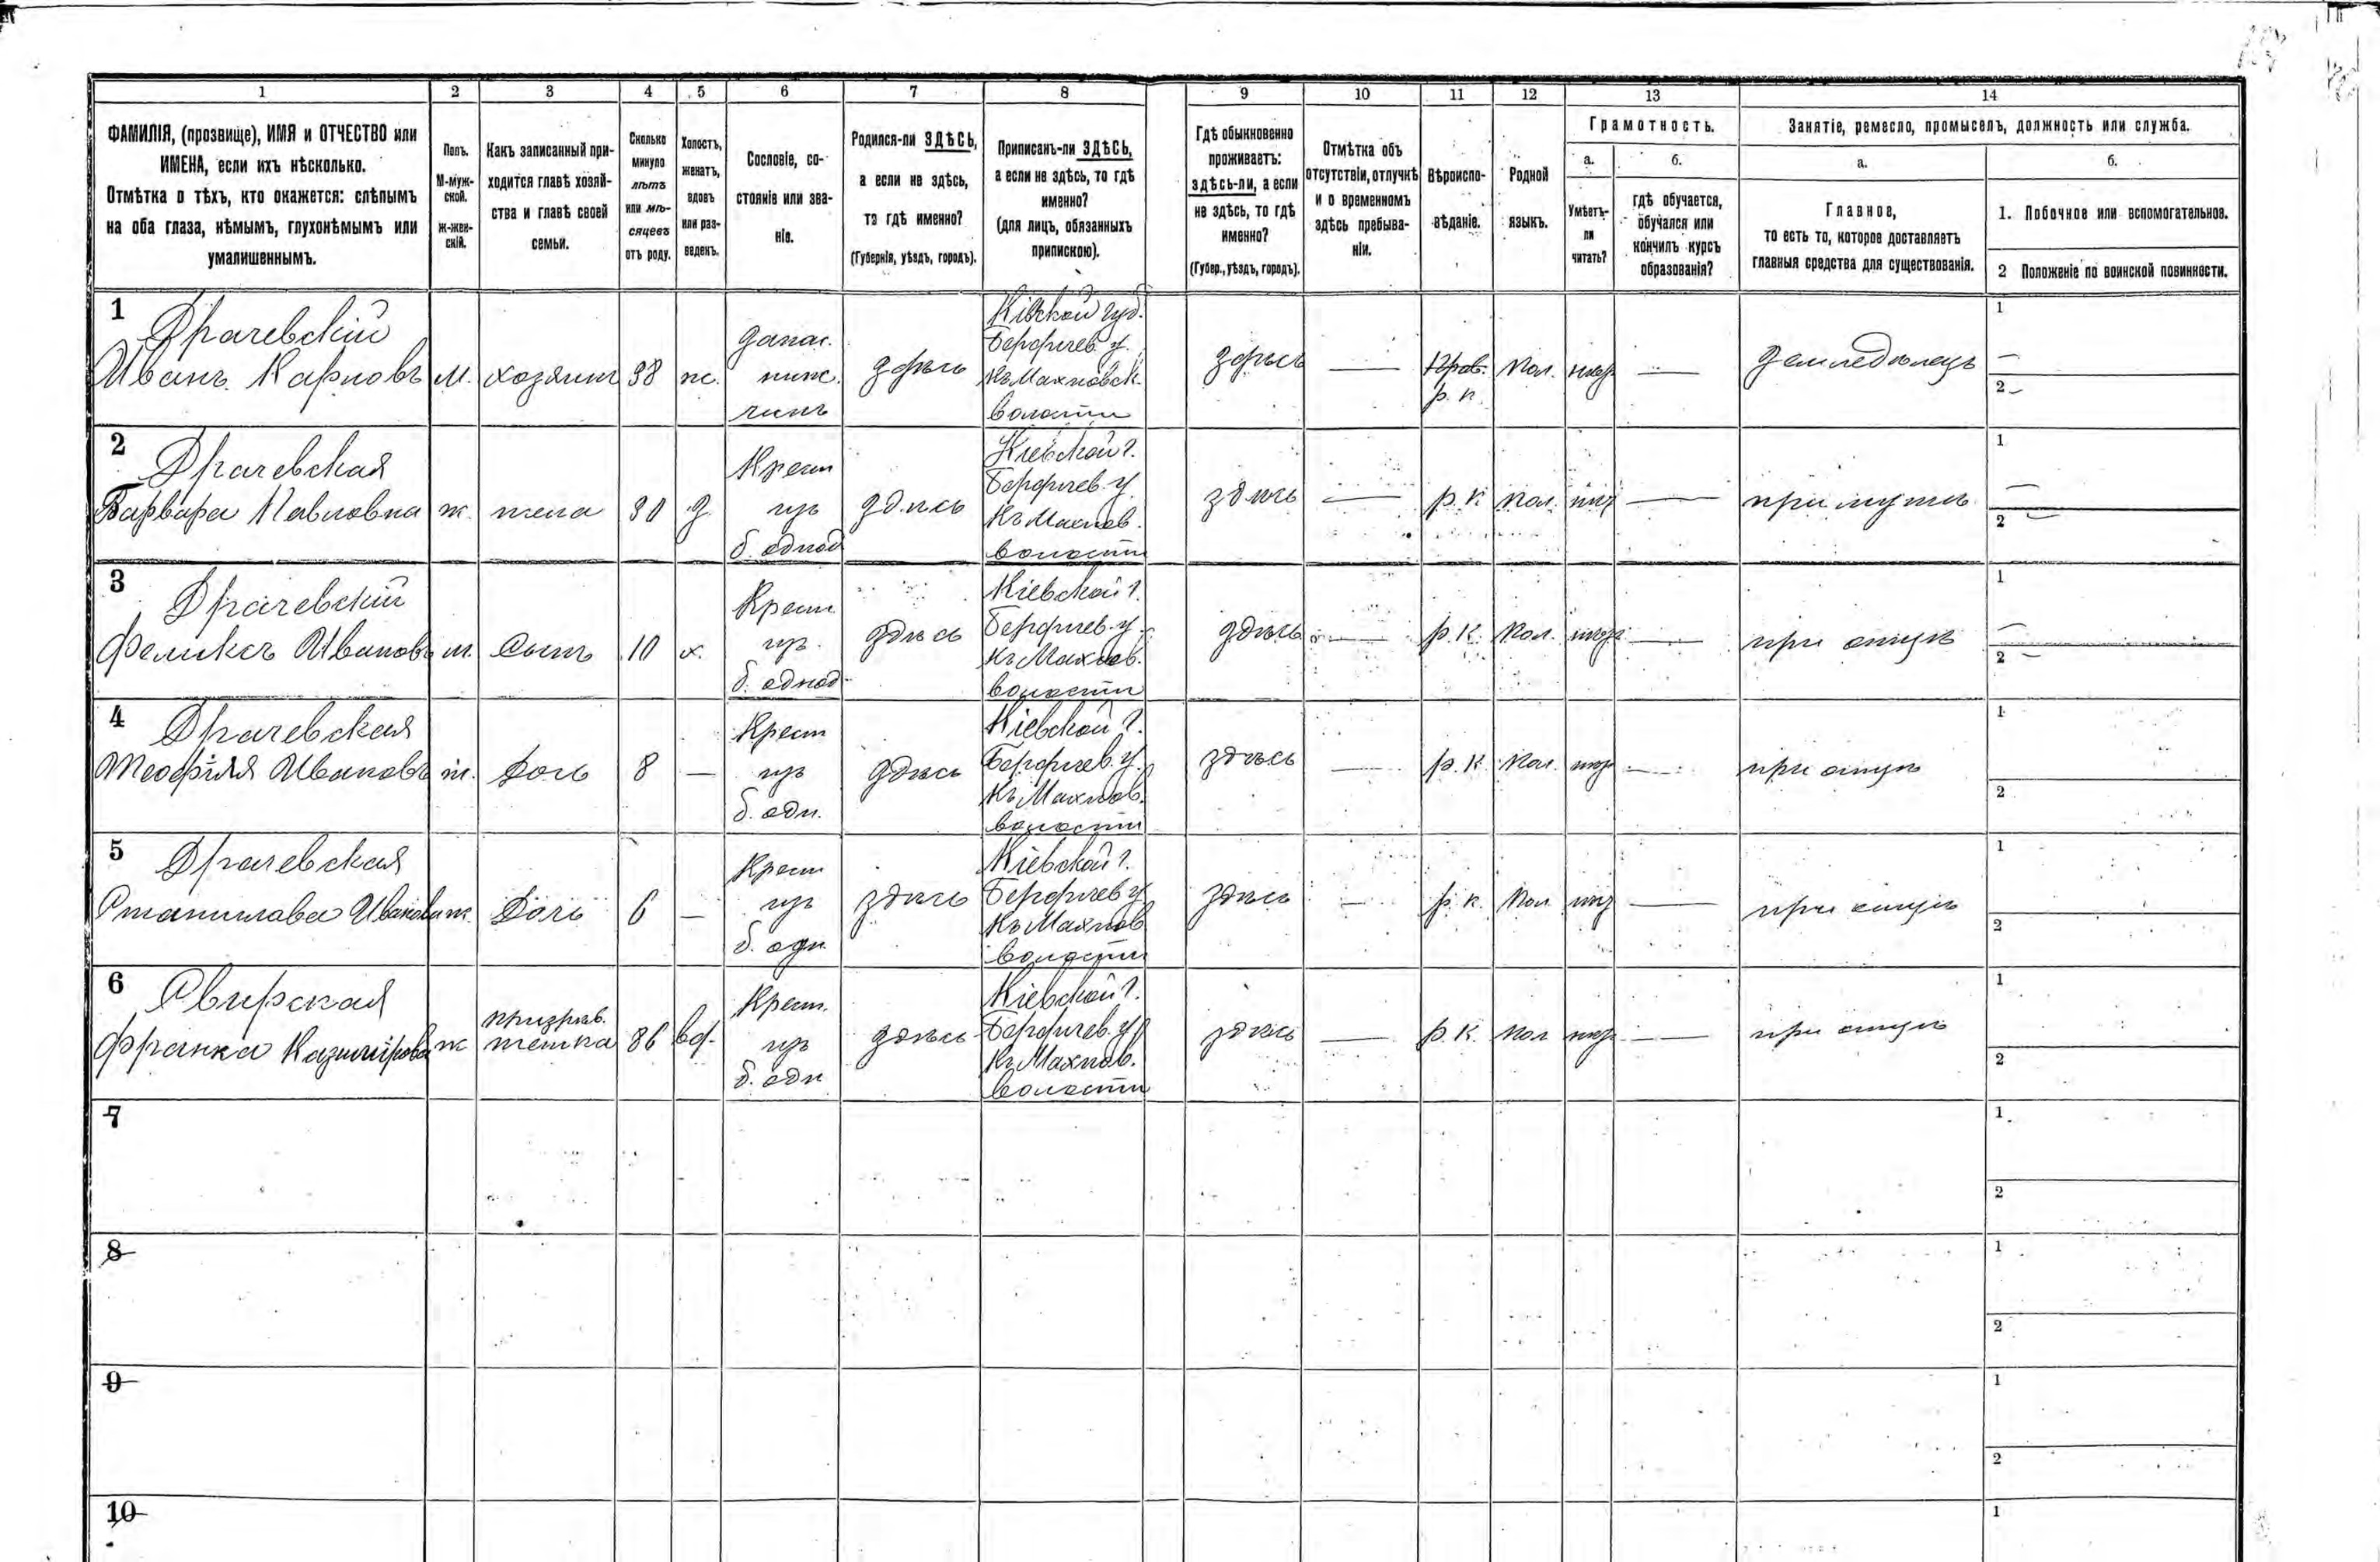 1 2 3 4 5 6 7 8 9 10 11 12 13 14
ФАМИЛІЯ, (прозвище), ИМЯ и ОТЧЕСТВО или
ИМЕНА, если ихъ нѣсколько.
Отмѣтка о тѣхъ, кто окажется: слѣпымъ
на оба глаза, нѣмымъ, глухонѣмымъ или
умалишеннымъ.
Полъ.
М-муж-
ской.
Ж-жен-
скій.
Какъ записанный при-
ходится главѣ хозяй-
ства и главѣ своей
семьи.
Сколько
минуло
лѣтъ
или мѣ-
сяцевъ
отъ роду.
Холостъ,
женатъ,
вдовъ
или раз-
веденъ.
Сословіе, со-
стояніе или зва-
ніе.
Родился-ли ЗДѢСЬ,
а если не здѣсь,
то гдѣ именно?
(Губернія, уѣздъ, городъ).
Приписанъ-ли ЗДѢСЬ,
а если не здѣсь, то гдѣ
именно?
(для лицъ, обязанныхъ
припискою).
Гдѣ обыкновенно
проживаетъ:
здѣсь-ли, а если
не здѣсь, то гдѣ
именно?
(Губер., уѣздъ, городъ).
Отмѣтка объ
отсутствіи, отлучкѣ
и о временномъ
здѣсь пребыва-
ніи.
Вѣроиспо-
вѣданіе.
Родной
языкъ.
Грамотность.
а.
Умѣетъ-
ли
читать?
б.
гдѣ обучается,
обучался или
кончилъ курсъ
образованія?
Занятіе, ремесло, промыселъ, должность или служба.
а.
Главное,
то есть то, которое доставляетъ
главныя средства для существованія.
б.
1. Побочное или вспомогательное.
2 Положеніе по воинской повинности.
1
Драчевскій
Иванъ Карповъ
м.
хозяинъ
38
ж.
здѣсь
Кіевской губ.
Бердичев. у.
къ Махновск.
волости
здѣсь
—
Прав.
р. к.
пол.
—
земледѣлецъ
1
—
2 —
2
Драчевская
Варвара Павловна
ж.
жена
30
з.
Крест
изъ
б. однод
здѣсь
Кіевской г.
Бердичев. у.
къ Махнов.
волости
здѣсь
—
р. к
пол.
—
при мужѣ
1
—
2 —
3
Драчевскій
Феликсъ Ивановъ
м.
Сынъ
10
х.
Крест
изъ
б. однод
здѣсь
Кіевской г.
Бердичев. у.
къ Махнов.
волости
здѣсь
—
р. к.
пол.
—
при отцѣ
1
—
2 —
4
Драчевская
Теофілія Иванов
ж.
Дочь
8
—
Крест
изъ
б. одн.
здѣсь
Кіевской г.
Бердичев. у.
къ Махнов.
волости
здѣсь
—
р. к
пол.
—
при отцѣ
1
2
5
Драчевская
Станислава Иванов
ж.
Дочь
6
—
Крест
изъ
б. одн
здѣсь
Кіевской г.
Бердичев у
къ Махнов
волости
здѣсь
—
р. к.
пол
—
при отцѣ
1
2
6
Свирская
Франка Казимірова
ж
тетка
86
вд.
Крест.
изъ
б. одн
здѣсь
Кіевской г.
Бердичев. у
къ Махнов.
волости
здѣсь
—
р. к.
пол
—
при отцѣ
1
2
7
1
2
8
1
2
9
1
2
10
1